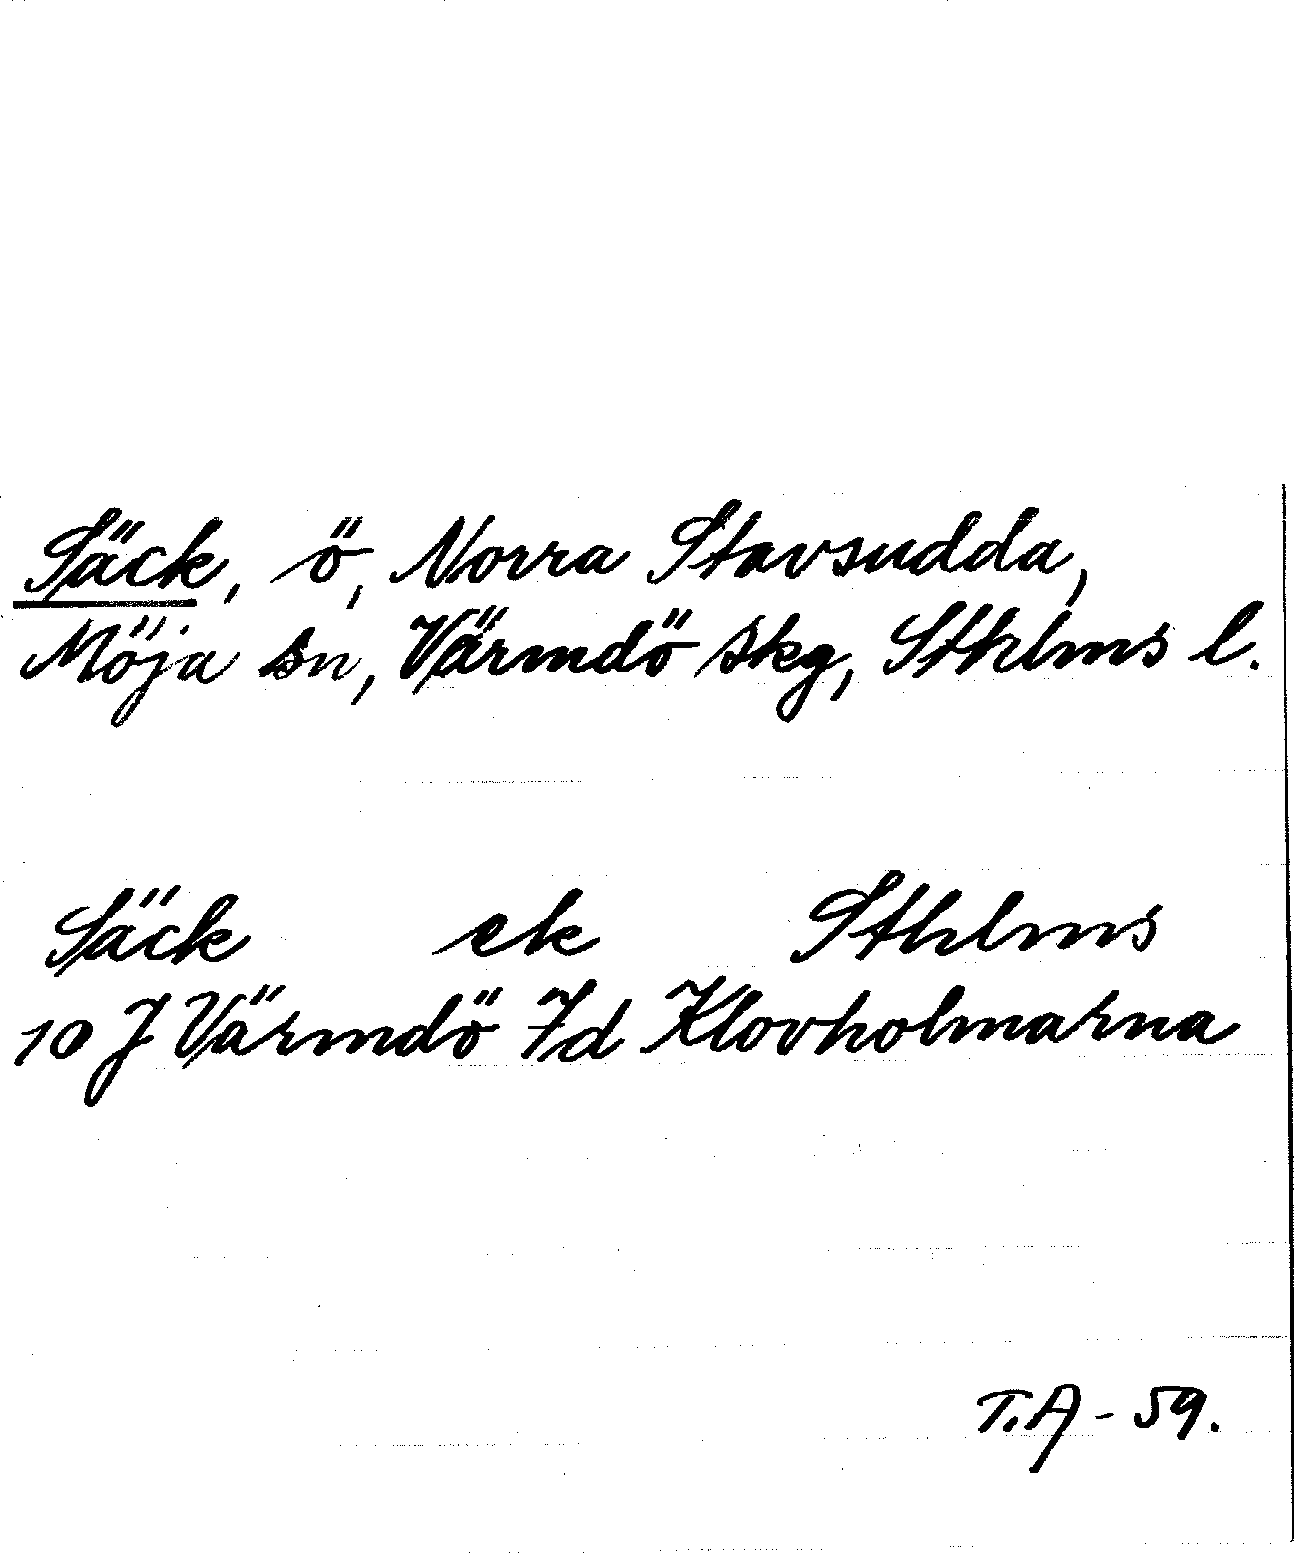 Säck, ö, Norra Stavsudda,
Möja sn, Värmdö skg, Sthlms l.
Säck ek Sthlms
10 J Värmdö 7d Klovholmarna
T.A - 59.